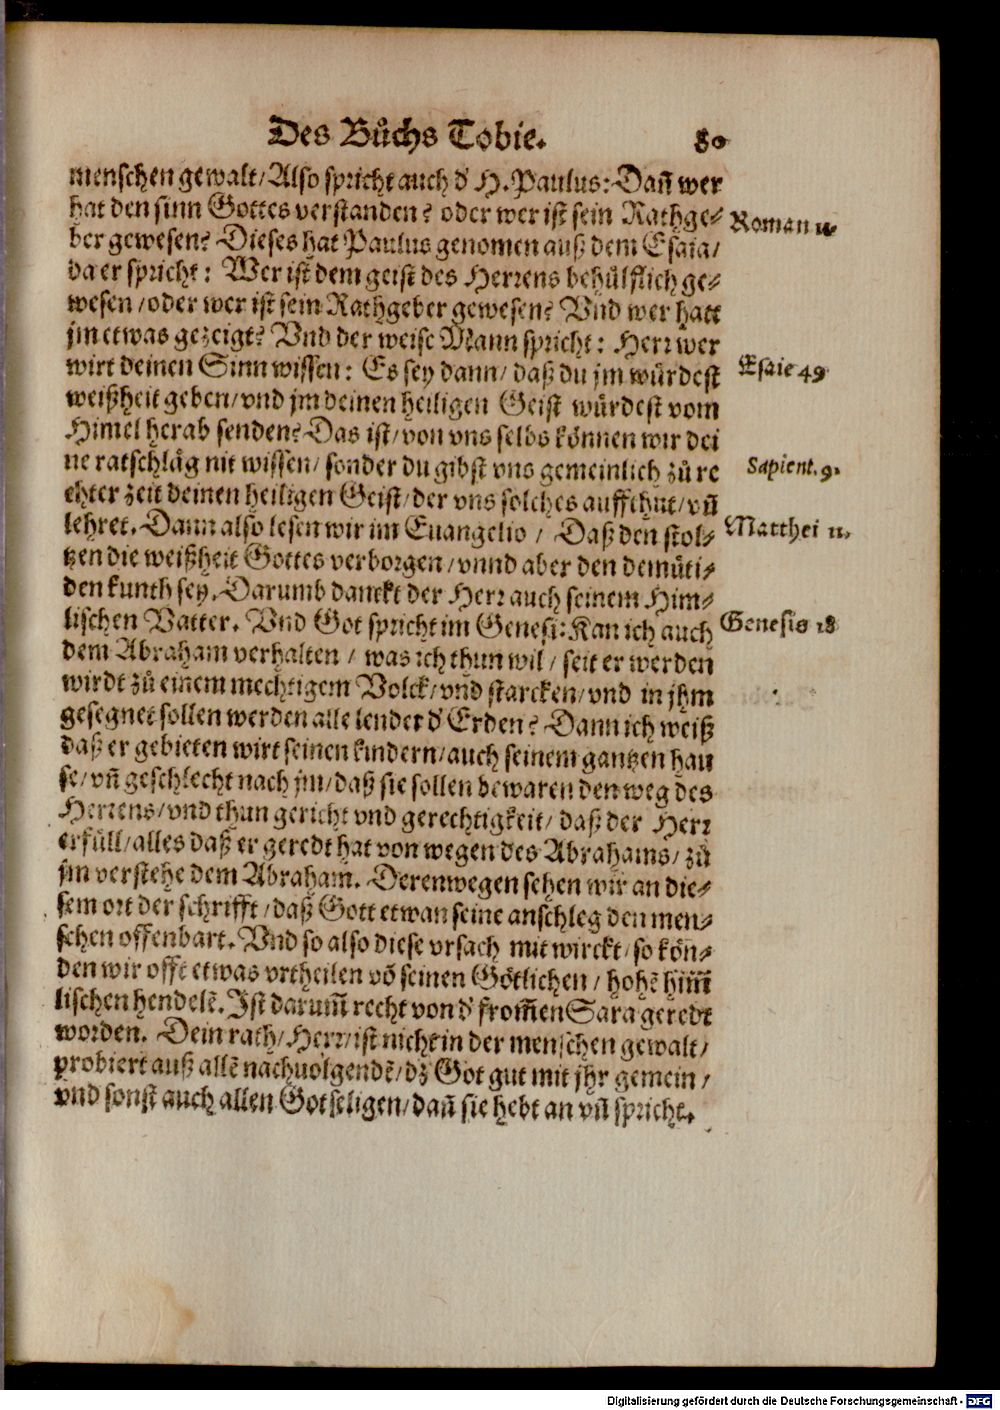 Des Bůchs Tobie. 80
menschen gewalt/Also spricht auch d' H. Paulus: Dañ wer
hat den sinn Gottes verstanden? oder wer ist sein Rathge-
Roman 11.
ber gewesen? Dieses hat Paulus genomen auß dem Esaia/
da er spricht: Wer ist dem geist des Herrens behülfflich ge-
wesen/oder wer ist sein Rathgeber gewesen? Vnd wer hatt
jm etwas gezeigt? Vnd der weise Mann spricht: Herr wer
wirt deinen Sinn wissen: Es sey dann/ daß du jm würdest
Esaie 49
weißheit geben/vnd jm deinen heiligen Geist würdest vom
Himel herab senden? Das ist/von vns selbs können wir dei
ne ratschläg nit wissen/ sonder du gibst vns gemeinlich zů re
Sapient. 9.
chter zeit deinen heiligen Geist/der vns solches auffthut/vñ
lehret. Dann also lesen wir im Euangelio / Daß den stol-
Matthei 11.
tzen die weißheit Gottes verborgen/vnnd aber den demüti-
den kunth sey. Darumb danckt der Herr auch seinem Him-
lischen Vatter. Vnd Got spricht im Genesi: Kan ich auch
Genesis 18
dem Abraham verhalten / was ich thun wil/ seit er werden
wirdt zů einem mechtigem Volck/vnd starcken/vnd in jhm
gesegnet sollen werden alle lender d' Erden? Dann ich weiß
daß er gebieten wirt seinen kindern/auch seinem gantzen hau
se/vñ geschlecht nach jm/daß sie sollen bewaren den weg des
Herrens/vnd thun gericht vnd gerechtigkeit/ daß der Herr
erfüll/alles daß er geredt hat von wegen des Abrahams/ zů
jm verstehe dem Abraham. Derenwegen sehen wir an die-
sem ort der schrifft/daß Gott etwan seine anschleg den men-
schen offenbart. Vnd so also diese vrsach mit wirckt/so kön-
den wir offt etwas vrtheilen võ seinen Götlichen/hohẽ him̃
lischen hendelẽ. Ist darum̃ recht von d' from̃en Sara geredt
worden. Dein rath/Herr/ist nicht in der menschen gewalt/
probiert auß allẽ nachuolgendẽ/dz Got gut mit jhr gemein/
vnd sonst auch allen Gotseligen/dañ sie hebt an vñ spricht.
Digitalisierung gefördert durch die Deutsche Forschungsgemeinschaft - DFG